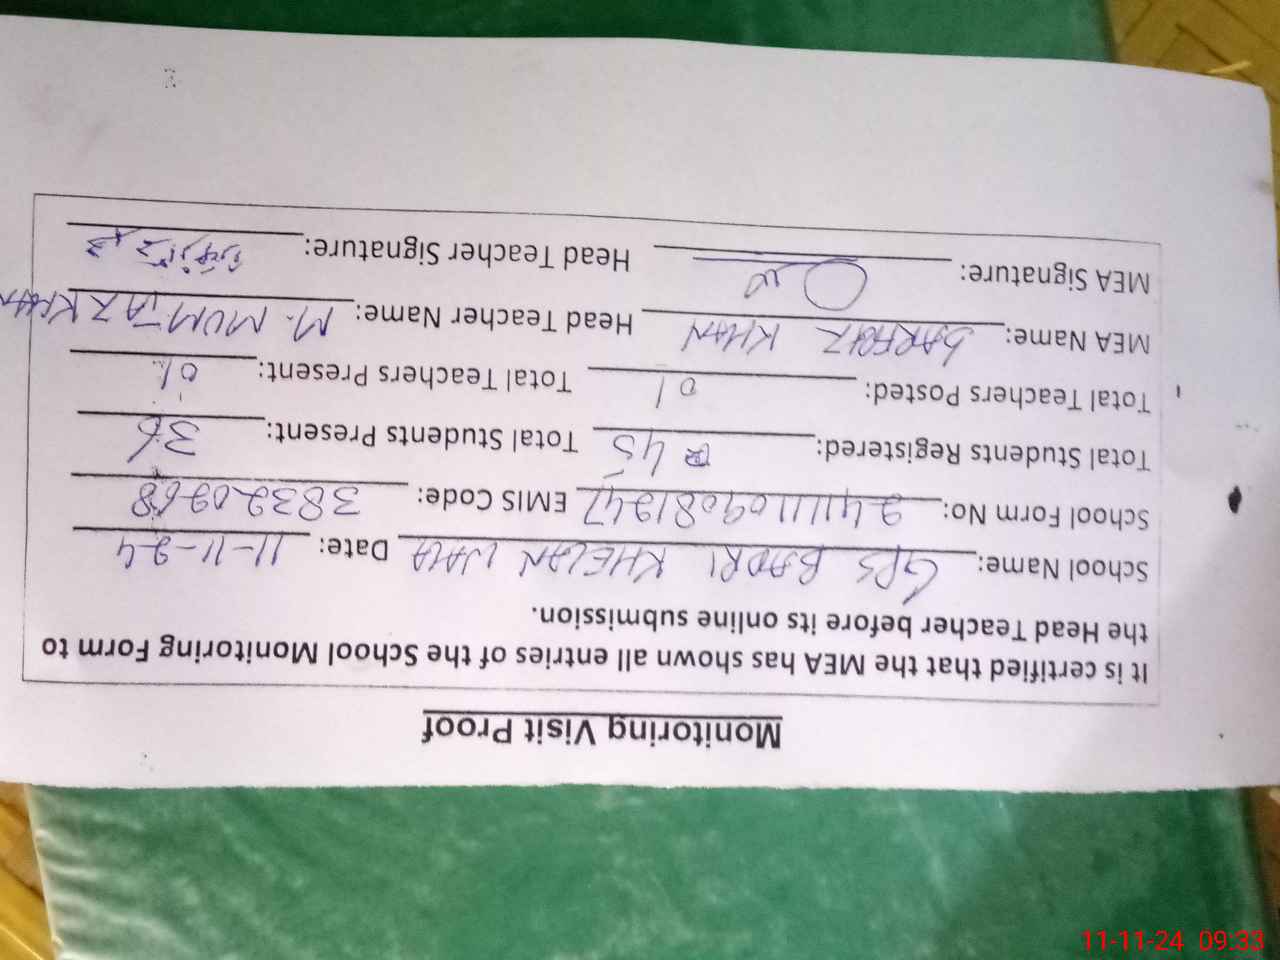 Monitoring Visit Proof
It is certified that the MEA has shown all entries of the School Monitoring Form to
the Head Teacher before its online submission.
School Name: GPS BADRI KHELAN WALA Date: 11-11-24
School Form No: 24111109081247 EMIS Code: 38320968
Total Students Registered: 45 Total Students Present: 36
Total Teachers Posted: 01 Total Teachers Present: 01
MEA Name: SARFRAZ KHAN Head Teacher Name: M. MUMTAZ KHAN
MEA Signature: Head Teacher Signature:
11-11-24 09:33